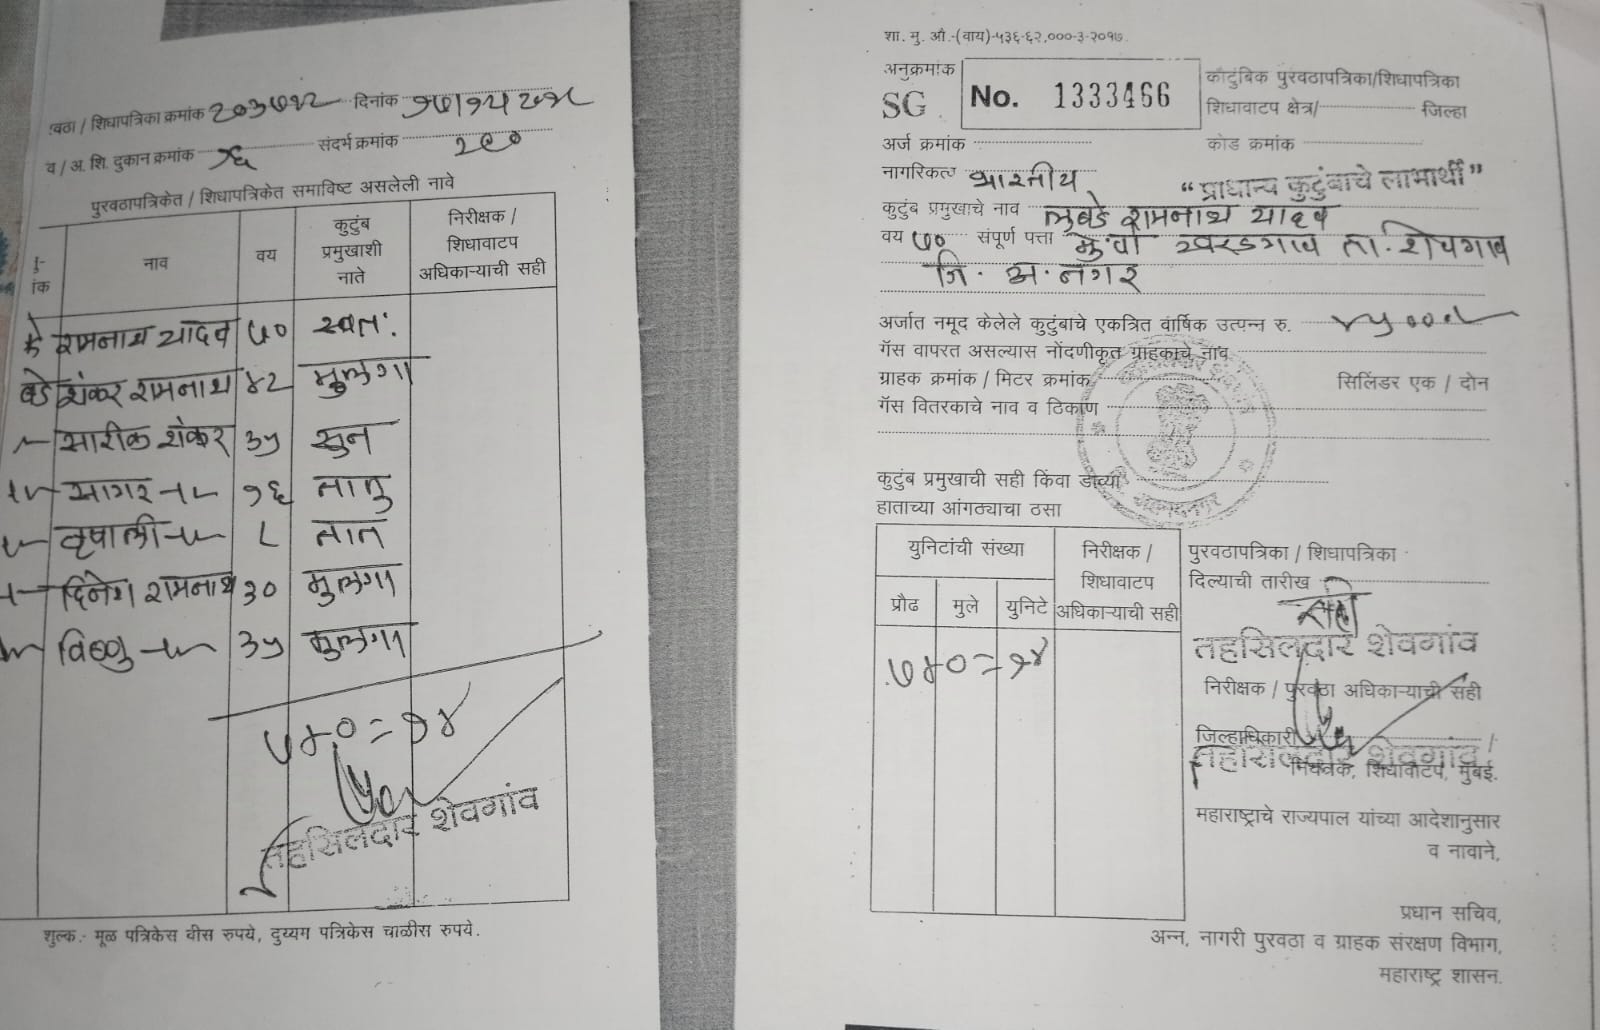 वठा / शिधापत्रिका क्रमांक २०३७१२ दिनांक
व / अ. शि. दुकान क्रमांक संदर्भ क्रमांक
पुरवठापत्रिकेत / शिधापत्रिकेत समाविष्ट असलेली नावे
नाव वय कुटुंब प्रमुखाशी नाते निरीक्षक / शिधावाटप अधिकाऱ्याची सही
रामनाथ यादव ७० स्वतः
शंकर रामनाथ ४२ मुलगा
शंकर ३५ सुन
सागर -॥- १६ नातु
वृषाली -॥- ८ नात
रामनाथ ३० मुलगा
विष्णु -॥- ३५ मुलगा
७+०=१४
तहसिलदार शेवगांव
शुल्क.- मूळ पत्रिकेस वीस रुपये, दुय्यम पत्रिकेस चाळीस रुपये.
शा. मु. औ.-(वाय)-५३६-६२,०००-३-२०१७.
अनुक्रमांक
SG No. 1333466
कौटुंबिक पुरवठापत्रिका/शिधापत्रिका
शिधावाटप क्षेत्र/ जिल्हा
अर्ज क्रमांक कोड क्रमांक
नागरिकत्व भारतीय "प्राधान्य कुटुंबाचे लाभार्थी"
कुटुंब प्रमुखाचे नाव रामनाथ यादव
वय ७० संपूर्ण पत्ता ता. शेवगाव
जि. अ. नगर
अर्जात नमूद केलेले कुटुंबाचे एकत्रित वार्षिक उत्पन्न रु.
गॅस वापरत असल्यास नोंदणीकृत ग्राहकाचे नांव
ग्राहक क्रमांक / मिटर क्रमांक सिलिंडर एक / दोन
गॅस वितरकाचे नाव व ठिकाण
कुटुंब प्रमुखाची सही किंवा डाव्या
हाताच्या आंगठ्याचा ठसा
युनिटांची संख्या निरीक्षक / शिधावाटप अधिकाऱ्याची सही
प्रौढ मुले युनिटे
७+०=१४
पुरवठापत्रिका / शिधापत्रिका
दिल्याची तारीख
सही
तहसिलदार शेवगांव
निरीक्षक / पुरवठा अधिकाऱ्याची सही
जिल्हाधिकारी
तहसिलदार शेवगांव
नियंत्रक, शिधावाटप, मुंबई.
महाराष्ट्राचे राज्यपाल यांच्या आदेशानुसार
व नावाने,
प्रधान सचिव,
अन्न, नागरी पुरवठा व ग्राहक संरक्षण विभाग,
महाराष्ट्र शासन.